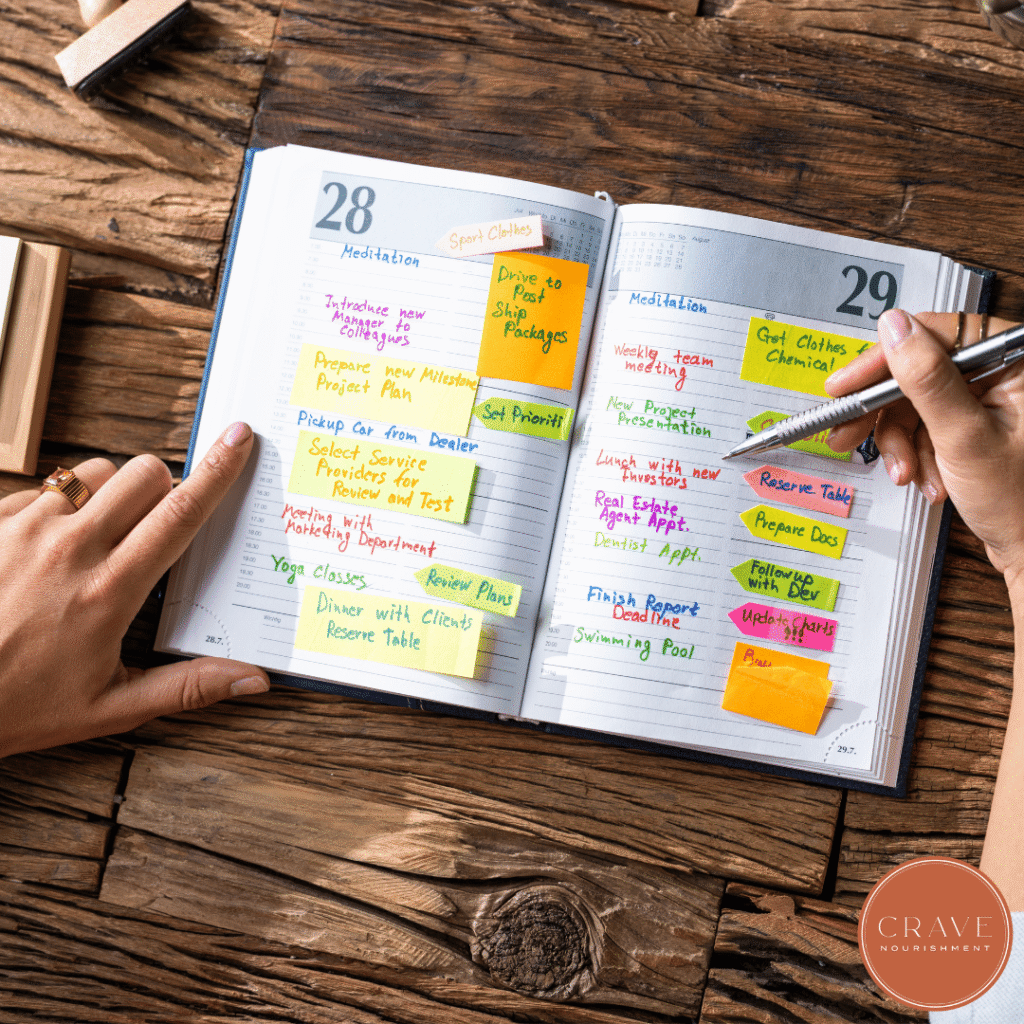 28
Sport Clothes
Meditation
Drive to
Post
Ship
Packages
Introduce new
Manager to
Colleagues
Prepare new Milestone
Project Plan
Set Prioriti
Pickup Car from Dealer
Select Service
Providers for
Review and Test
Meeting with
Marketing Department
Yoga Classes
Review Plans
Dinner with Clients
Reserve Table
28.7.
August
29
Meditation
Get Clothes
Chemical
Weekly team
meeting
New Project
Presentation
Lunch with new
Investors
Reserve Table
Real Estate
Agent Appt.
Prepare Docs
Dentist Appt.
Followup
with Dev
Finish Report
Deadline
Update Charts
!!!
Swimming Pool
29.7.
CRAVE
NOURISHMENT